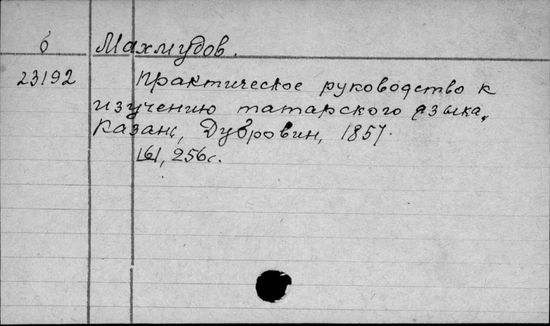 б Махмудов.
23192 Практическое руководство к
изучению татарского языка.
Казань, Дубровин, 1857.
161, 256с.